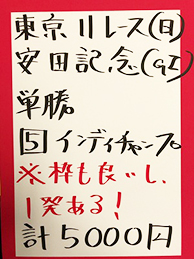 東京11レース(日)
安田記念(GI)
単勝
5 インディチャンプ
※枠も良いし、
1発ある!
計5000円